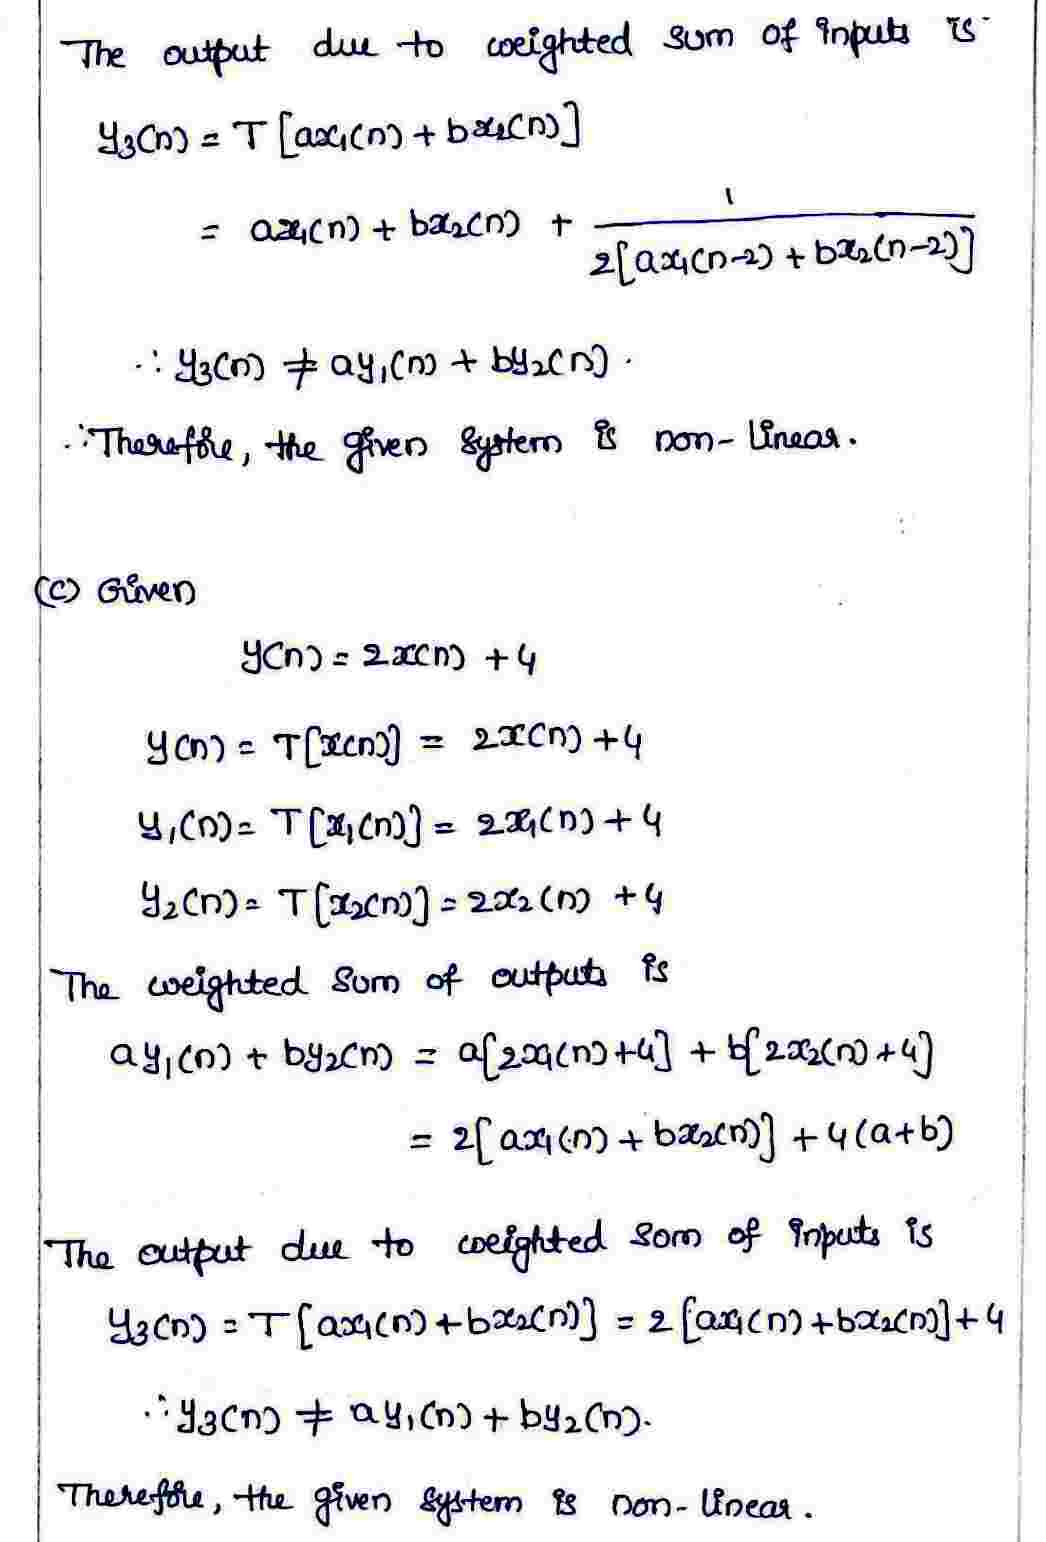 The output due to weighted sum of inputs is
y₃(n) = T[ax₁(n) + bx₂(n)]
= ax₁(n) + bx₂(n) + 1/2[ax₁(n-2) + bx₂(n-2)]
∴ y₃(n) ≠ ay₁(n) + by₂(n).
∴ Therefore, the given system is non-linear.
(c) Given
y(n) = 2x(n) + 4
y(n) = T[x(n)] = 2x(n) + 4
y₁(n) = T[x₁(n)] = 2x₁(n) + 4
y₂(n) = T[x₂(n)] = 2x₂(n) + 4
The weighted sum of outputs is
ay₁(n) + by₂(n) = a[2x₁(n)+4] + b[2x₂(n)+4]
= 2[ax₁(n) + bx₂(n)] + 4(a+b)
The output due to weighted sum of inputs is
y₃(n) = T[ax₁(n) + bx₂(n)] = 2[ax₁(n) + bx₂(n)] + 4
∴ y₃(n) ≠ ay₁(n) + by₂(n).
Therefore, the given system is non-linear.